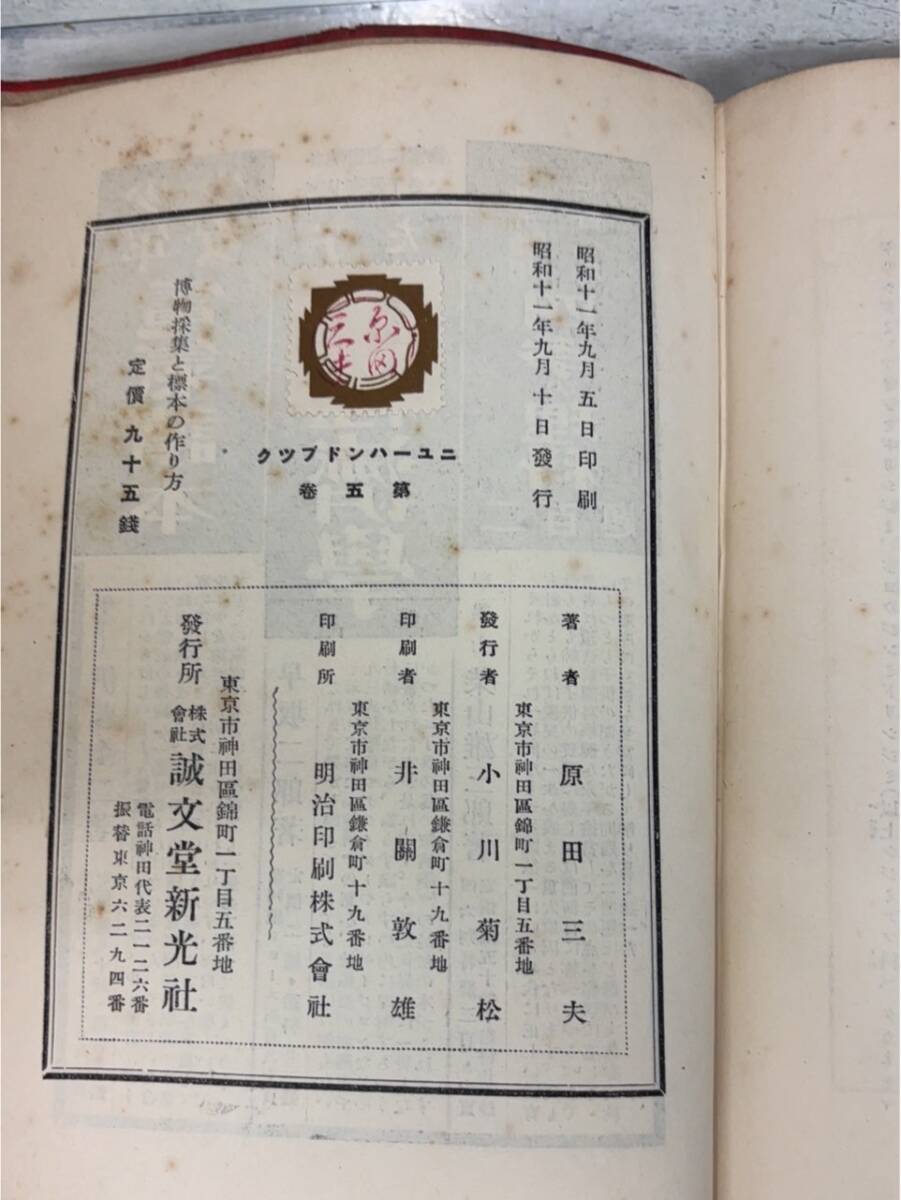 昭和十一年九月五日印刷
昭和十一年九月十日發行
原田
三夫
ニューハンドブック
第五卷
博物採集と標本の作り方
定價九十五錢
著者 原田三夫
東京市神田區錦町一丁目五番地
發行者 小川菊松
東京市神田區鎌倉町十九番地
印刷者 井關敦雄
東京市神田區鎌倉町十九番地
印刷所 明治印刷株式會社
東京市神田區錦町一丁目五番地
發行所 株式會社 誠文堂新光社
電話神田代表二一二六番
振替東京六二九四番